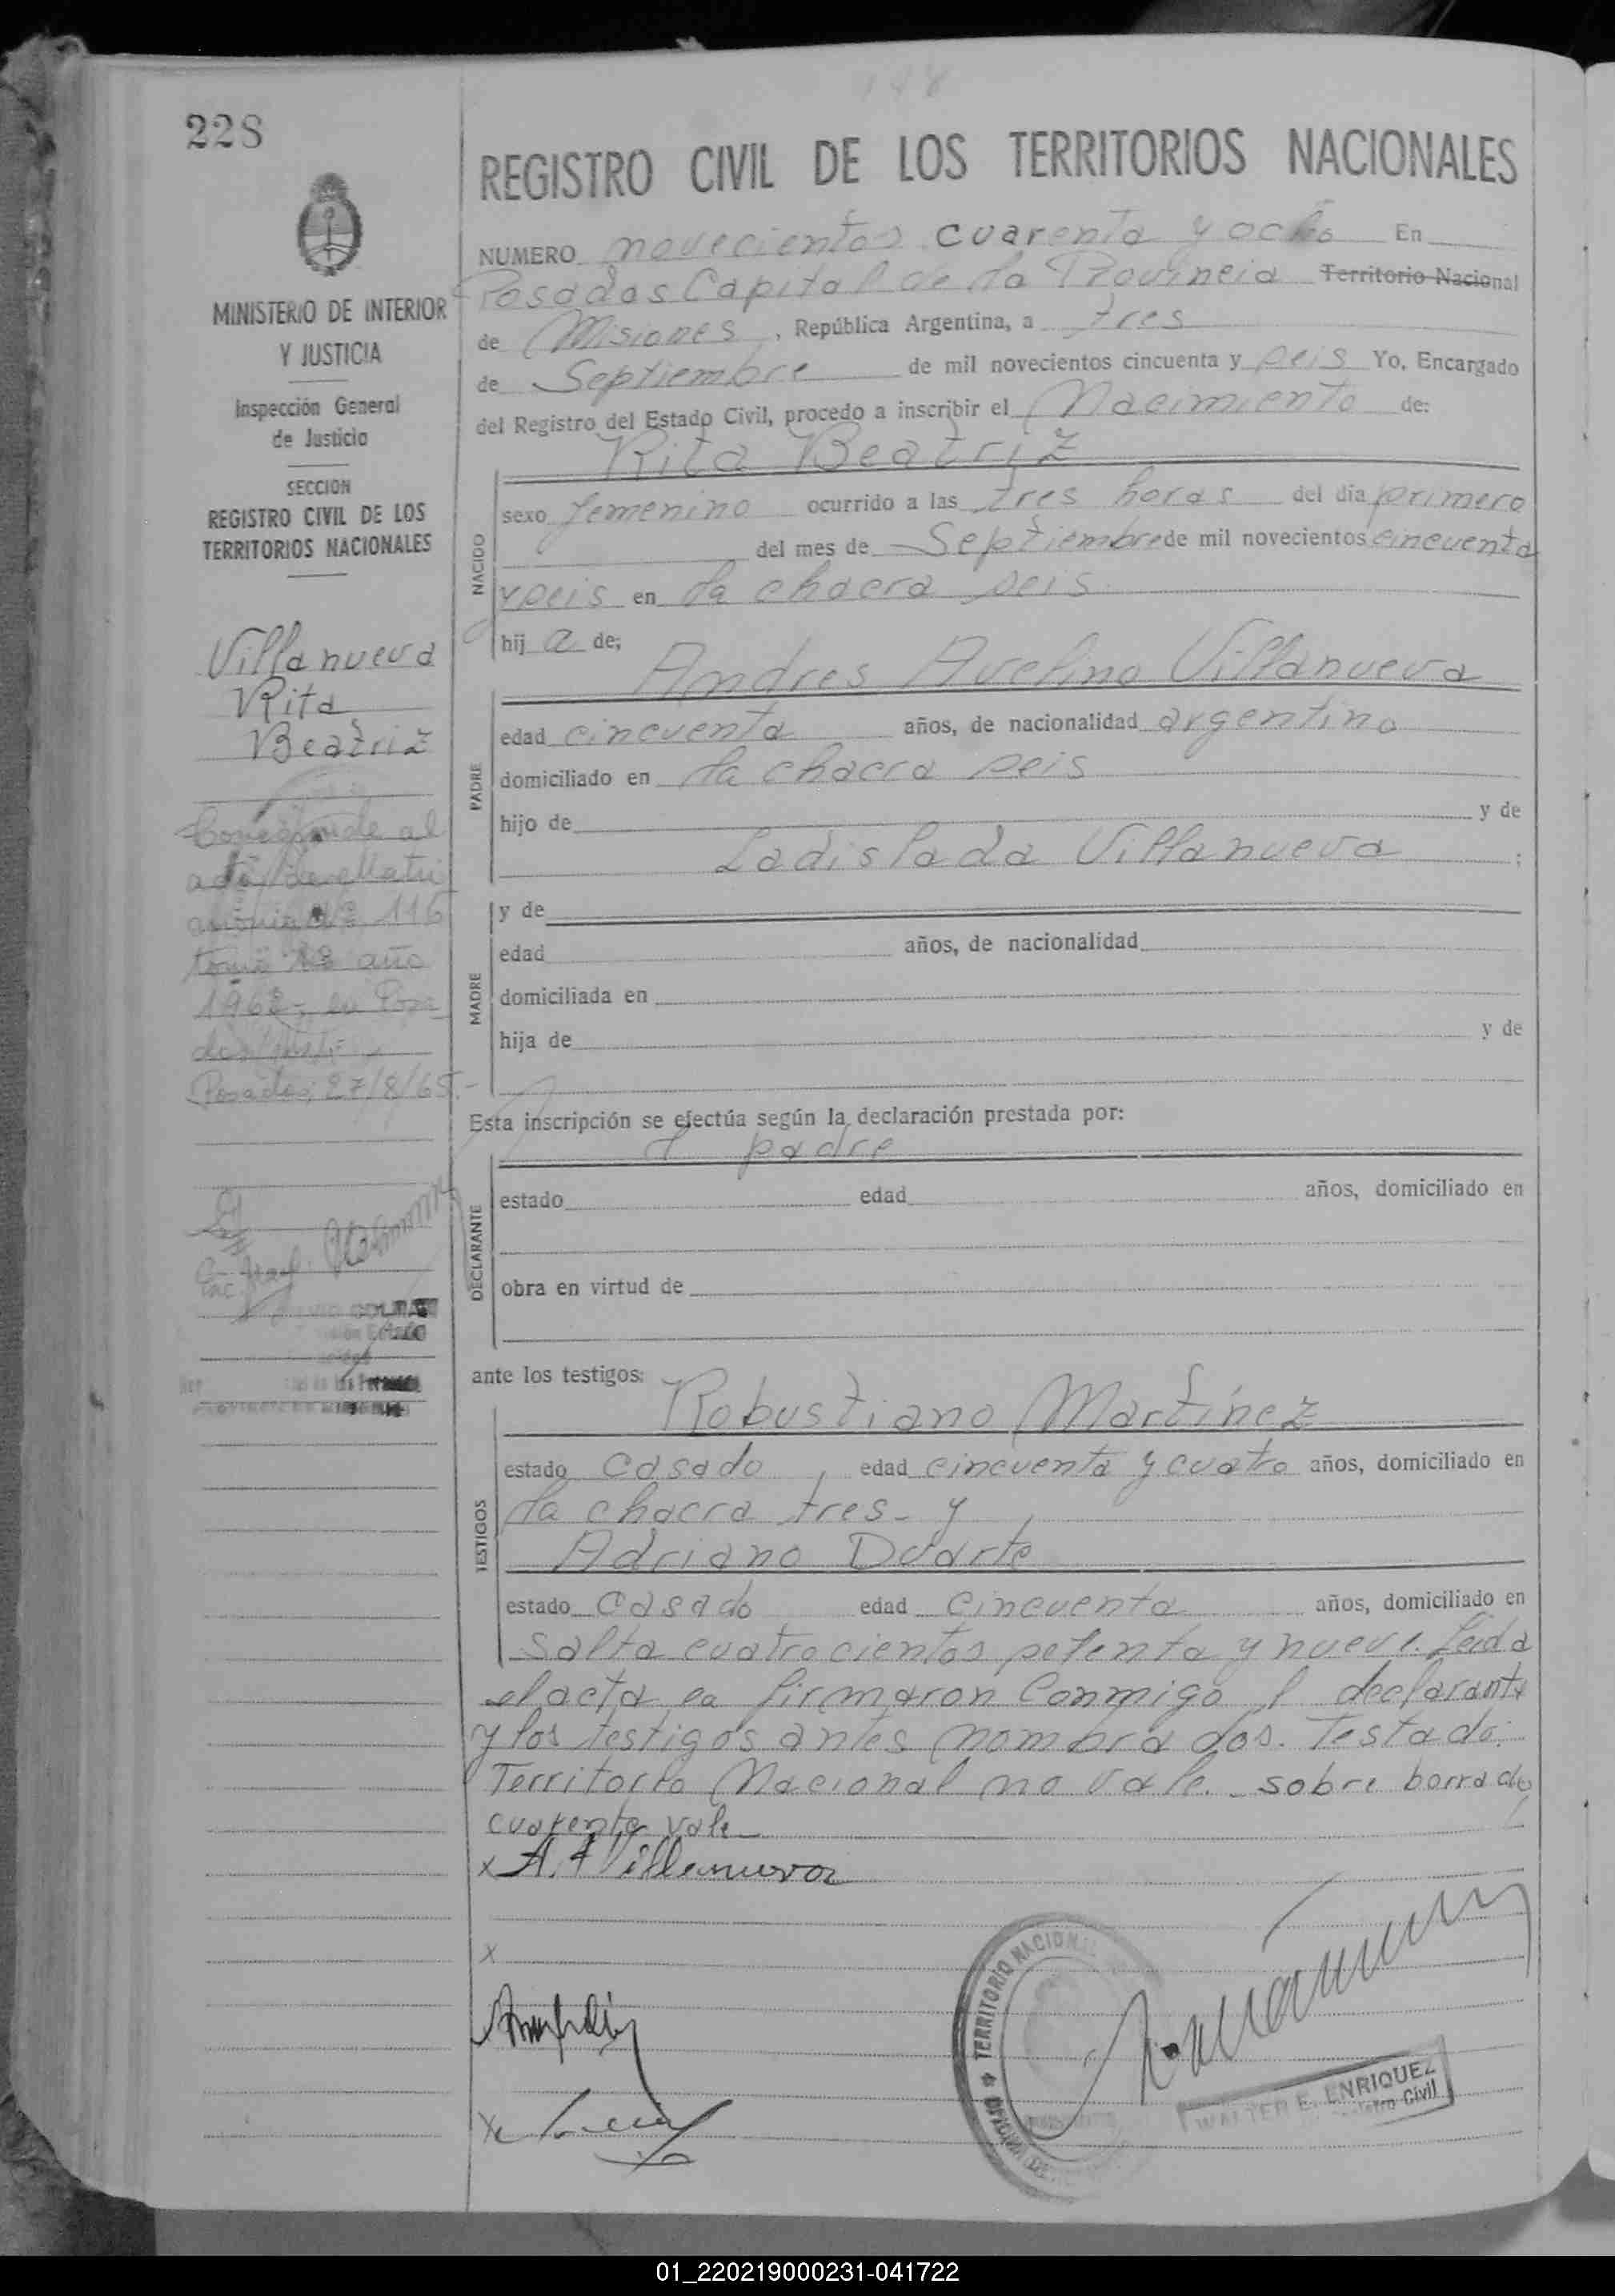 228
MINISTERIO DE INTERIOR
Y JUSTICIA
Inspección General
de Justicia
SECCION
REGISTRO CIVIL DE LOS
TERRITORIOS NACIONALES
Villanueva
Rita
Beatriz
Corresponde al
acta de Matri
monio Nº 116
tomo año
196 en Posa
das
Posadas, 27/8/65.-
REGISTRO CIVIL DE LOS TERRITORIOS NACIONALES
NUMERO novecientos cuarenta y ocho En
Posadas Capital de la Provincia Territorio Nacional
de Misiones, República Argentina, a tres
de Septiembre de mil novecientos cincuenta y seis Yo, Encargado
del Registro del Estado Civil, procedo a inscribir el Nacimiento de:
Rita Beatriz
NACIDO
sexo femenino ocurrido a las tres horas del día primero
del mes de Septiembre de mil novecientos cincuenta
y seis en la chacra seis
hij a de;
Andres Avelino Villanueva
PADRE
edad cincuenta años, de nacionalidad argentino
domiciliado en la chacra seis
hijo de y de
Ladislada Villanueva ;
MADRE
y de
edad años, de nacionalidad
domiciliada en
hija de y de
Esta inscripción se efectúa según la declaración prestada por:
el padre
DECLARANTE
estado edad años, domiciliado en
obra en virtud de
ante los testigos:
Robustiano Martínez
TESTIGOS
estado casado, edad cincuenta y cuatro años, domiciliado en
la chacra tres - y
Adriano Duarte
estado casado edad cincuenta años, domiciliado en
Salta cuatrocientos setenta y nueve. Leida
el acta la firmaron conmigo el declarante
y los testigos antes nombrados. Testado:
Territorio Nacional no vale. - sobre borrado
cuarenta vale
x A. A Villanueva
x
x
TERRITORIO NACIONAL
OFICINA DE
WALTER E. ENRIQUEZ
Registro Civil
01_220219000231-041722